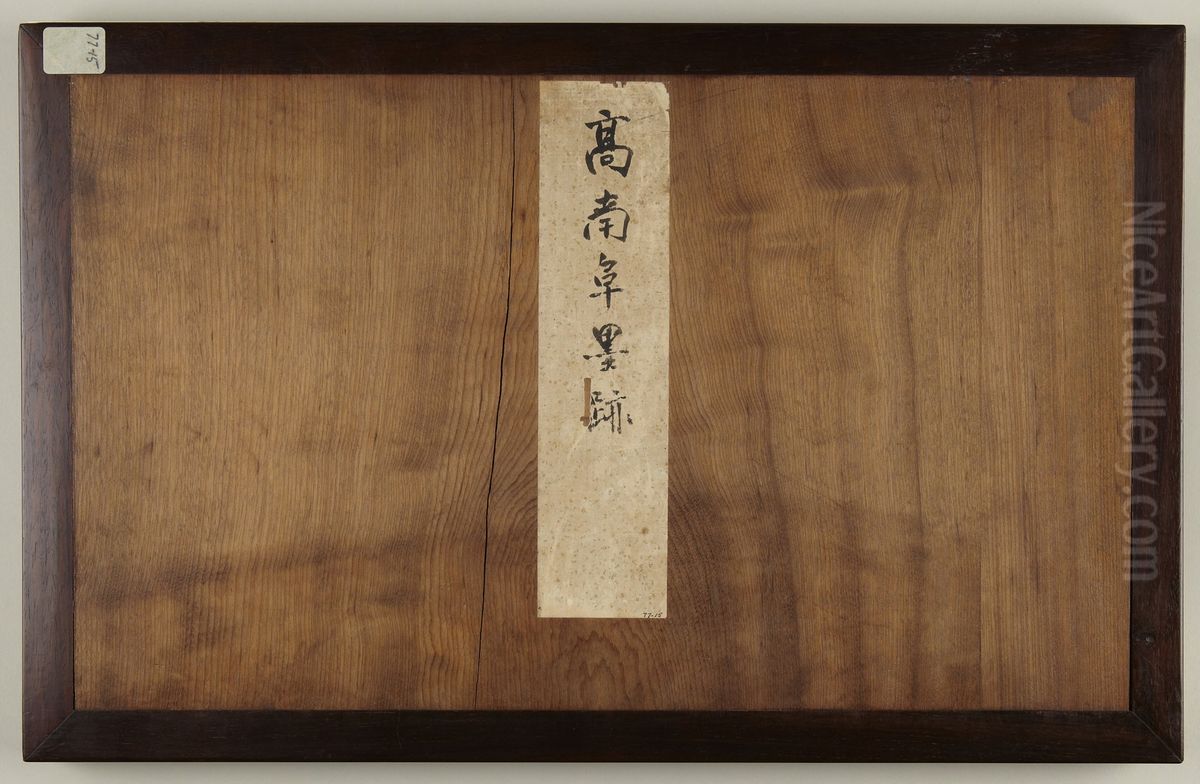 77-15
高南阜墨跡
77-15
NiceArtGallery.com